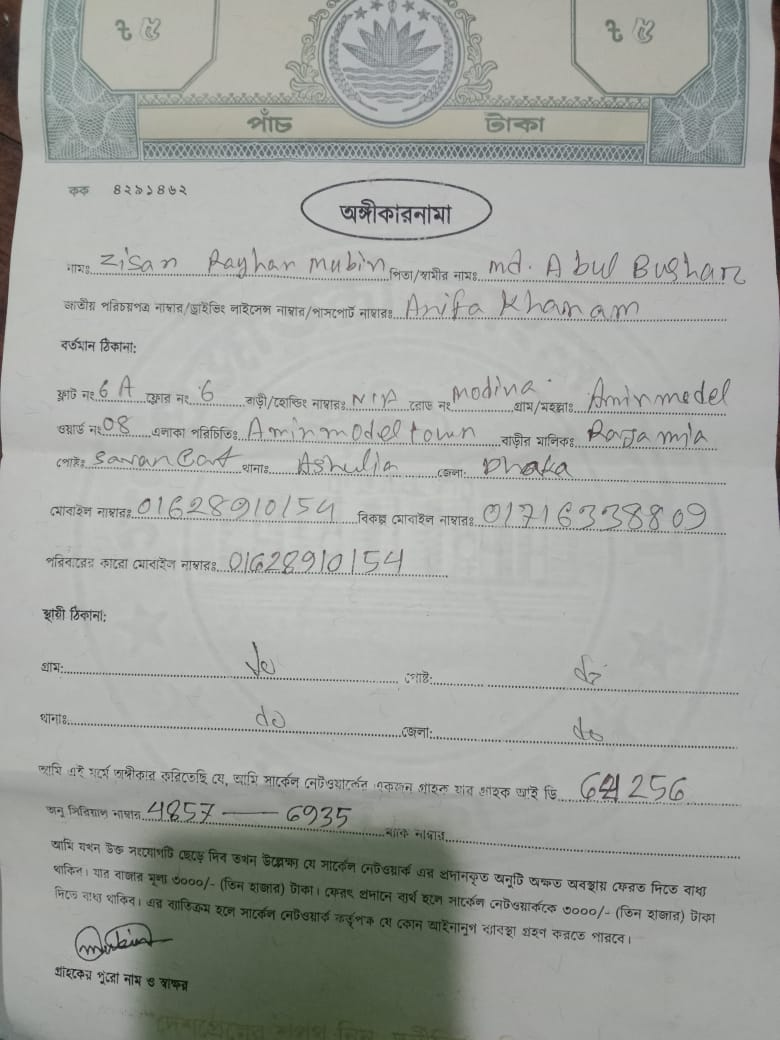 ৳ ৫ ৳ ৫
পাঁচ টাকা
কক ৪২৯১৪৬২
অঙ্গীকারনামা
নামঃ Zisan Rayhan Mubin পিতা/স্বামীর নামঃ md. Abul Bushar
জাতীয় পরিচয়পত্র নাম্বার/ড্রাইভিং লাইসেন্স নাম্বার/পাসপোর্ট নাম্বারঃ Anifa Khanam
বর্তমান ঠিকানা:
ফ্ল্যাট নং 6A ফ্লোর নং 6 বাড়ী/হোল্ডিং নাম্বারঃ N/A রোড নং modina গ্রাম/মহল্লাঃ Aminmodel
ওয়ার্ড নং 08 এলাকা পরিচিতিঃ Aminmodeltown বাড়ীর মালিকঃ Raja mia
পোষ্টঃ Savar Cant থানাঃ Ashulia জেলা: Dhaka
মোবাইল নাম্বারঃ 01628910154 বিকল্প মোবাইল নাম্বারঃ 01716338809
পরিবারের কারো মোবাইল নাম্বারঃ 01628910154
স্থায়ী ঠিকানা:
গ্রাম: do পোষ্ট: do
থানাঃ do জেলা: do
আমি এই মর্মে অঙ্গীকার করিতেছি যে, আমি সার্কেল নেটওয়ার্কের একজন গ্রাহক যার গ্রাহক আই ডি 64256
অনু সিরিয়াল নাম্বার 4857 — 6935 ম্যাক নাম্বার
আমি যখন উক্ত সংযোগটি ছেড়ে দিব তখন উল্লেখ্য যে সার্কেল নেটওয়ার্ক এর প্রদানকৃত অনুটি অক্ষত অবস্থায় ফেরত দিতে বাধ্য
থাকিব। যার বাজার মূল্য ৩০০০/- (তিন হাজার) টাকা। ফেরৎ প্রদানে ব্যর্থ হলে সার্কেল নেটওয়ার্ককে ৩০০০/- (তিন হাজার) টাকা
দিতে বাধ্য থাকিব। এর ব্যতিক্রম হলে সার্কেল নেটওয়ার্ক কর্তৃপক্ষ যে কোন আইনানুগ ব্যবস্থা গ্রহণ করতে পারবে।
Mubin
গ্রাহকের পুরো নাম ও স্বাক্ষর